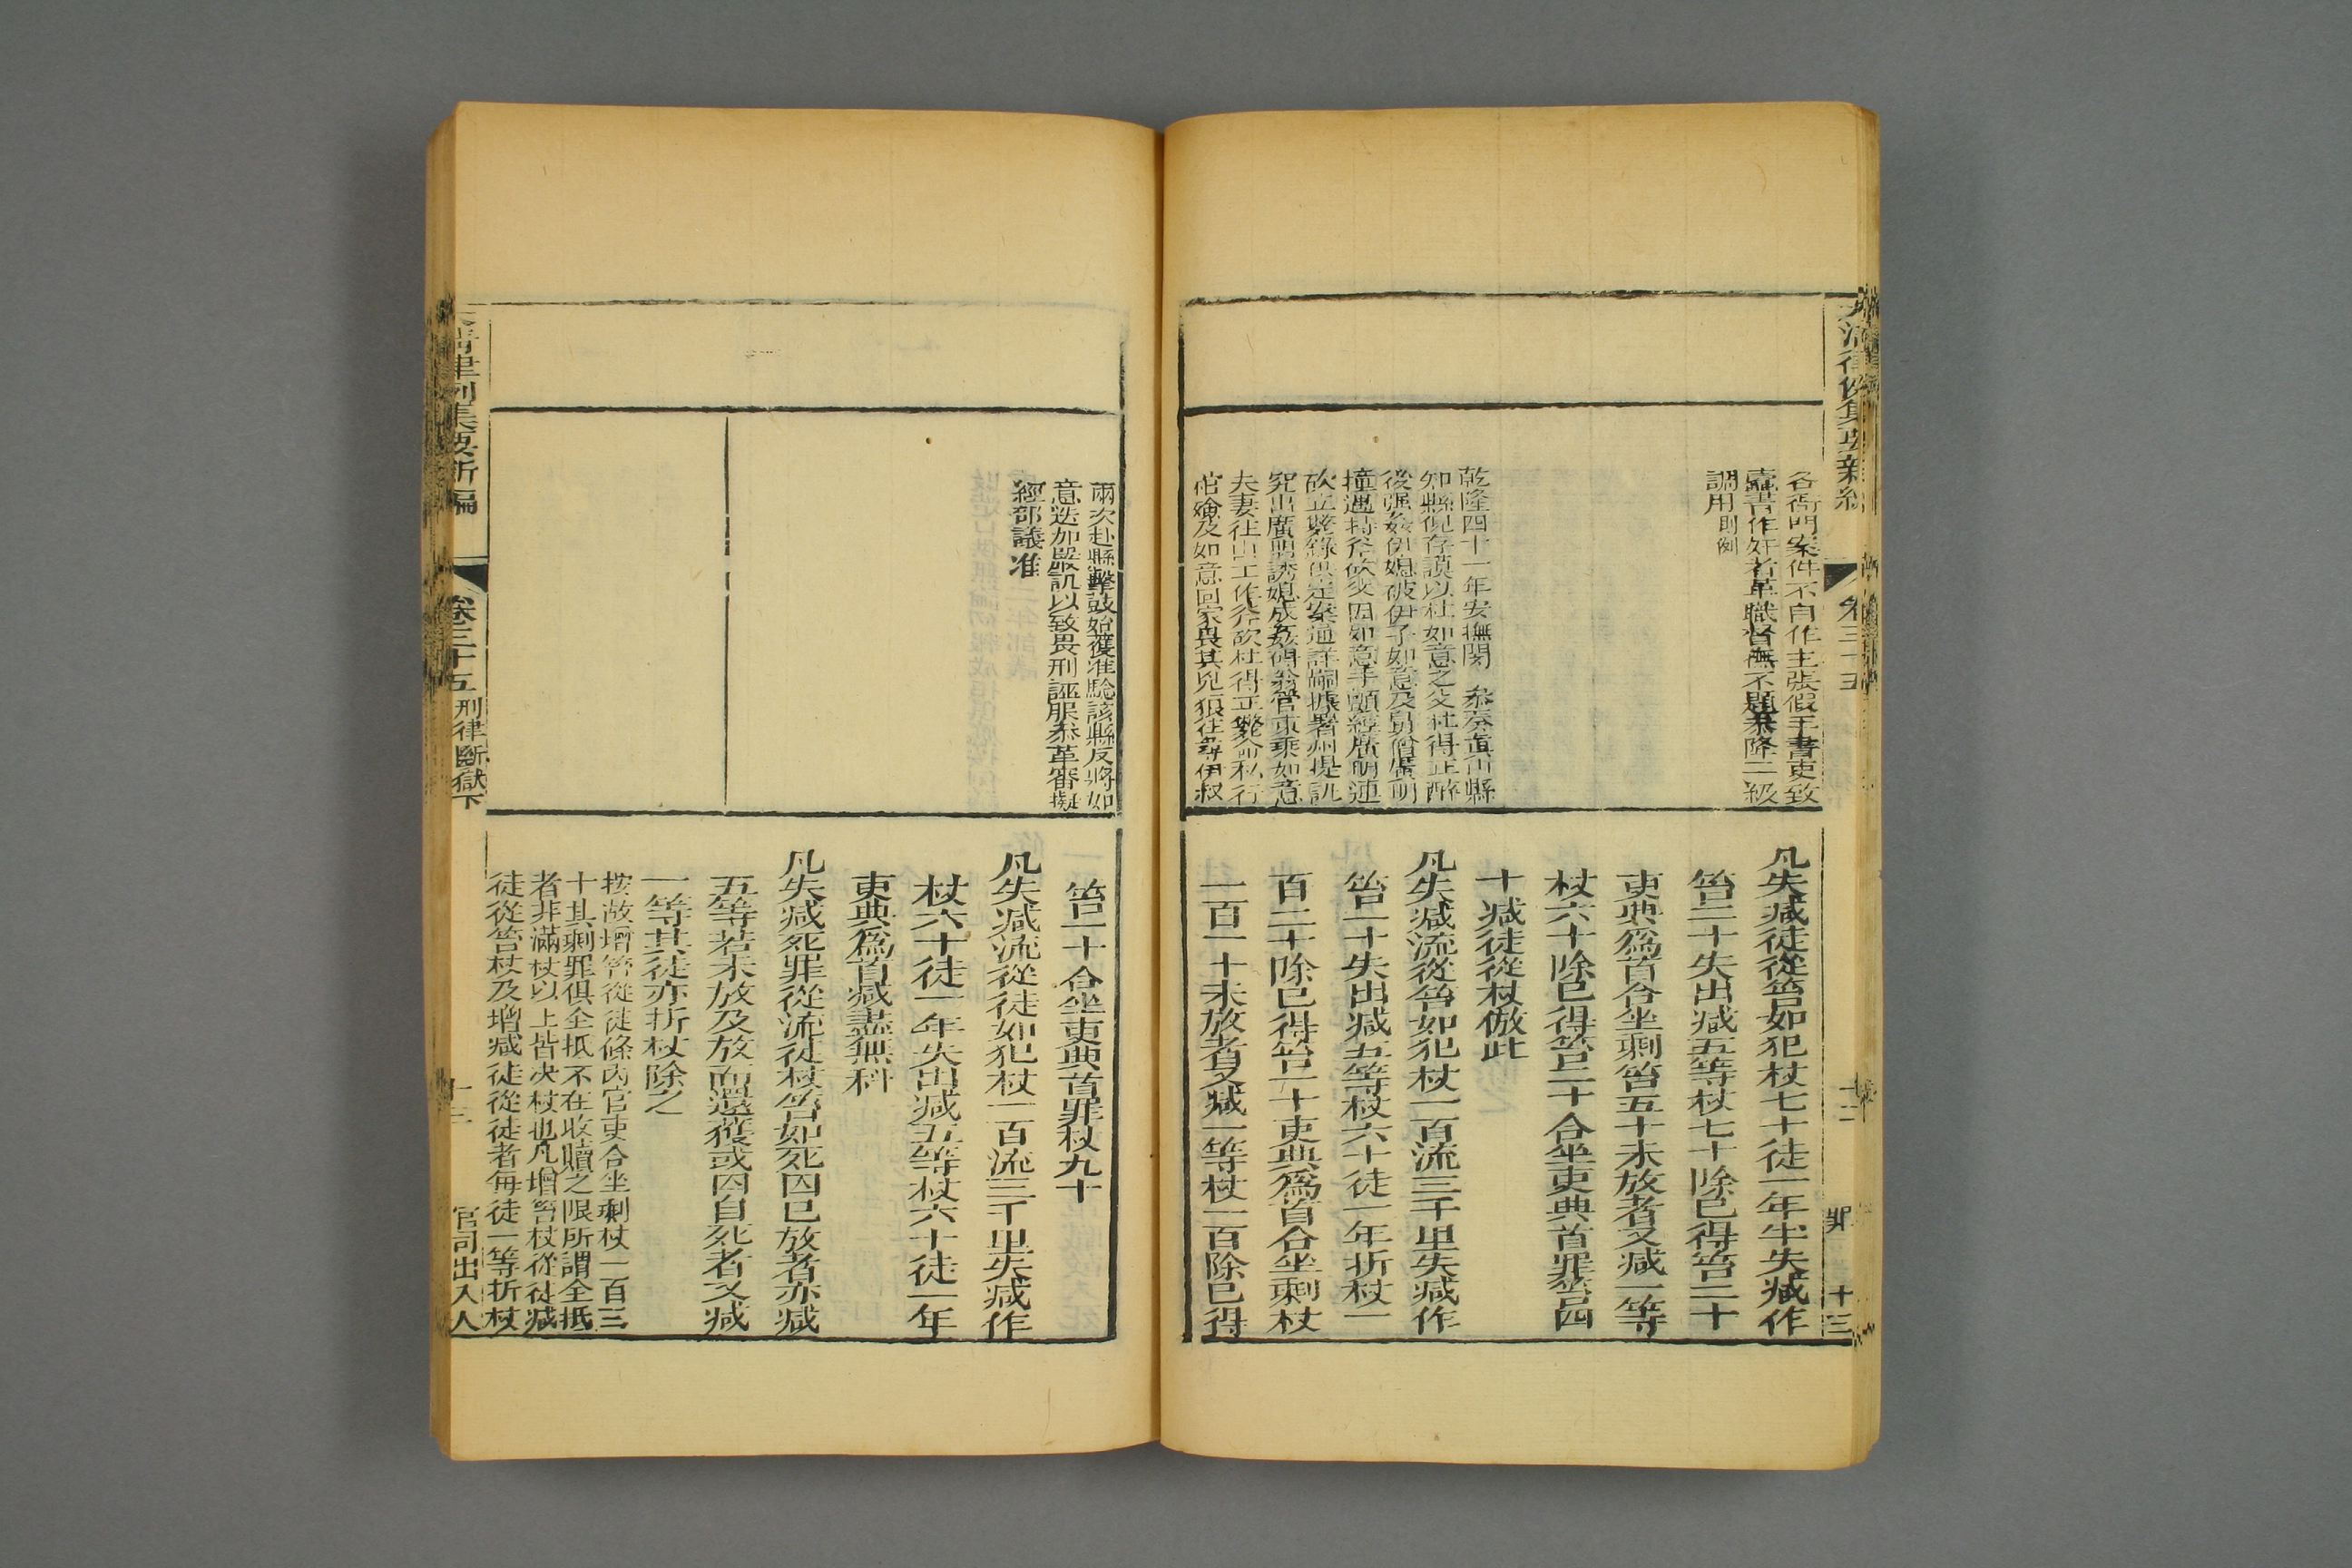 大清律例集要新編
卷三十五
十二
罪
十三
各衙門案件不自作主張假手書吏致
蠹書作奸者革職督撫不題參降二級
調用則例
乾隆四十一年安撫閔 參奏直州縣
知縣倪存謨以杜如意之父杜得正醉
後强姦伊媳破伊子如意及舅僧廣明
撞遇持斧砍父因如意手顫經廣明連
砍立斃錄供定案通詳嗣據署州提訊
究出廣明誘媳成姦得翁管束乘如意
夫妻往山工作斧砍杜得正斃命私行
棺殮及如意回家畏其兇狠往尋伊叔
凡失減徒從笞如犯杖七十徒一年半失減作
笞二十失出減五等杖七十除已得笞二十
吏典爲首合坐剩笞五十未放者又減一等
杖六十除已得笞二十合坐吏典首罪笞四
十減徒從杖倣此
凡失減流從笞如犯杖一百流三千里失減作
笞二十失出減五等杖六十徒一年折杖一
百二十除已得笞二十吏典爲首合坐剩杖
一百一十未放者又減一等杖一百除已得
兩次赴縣擊鼓始獲准驗該縣反將如
意迭加嚴訊以致畏刑誣服叅革審擬
經部議准
笞一十合坐吏典首罪杖九十
凡失減流從徒如犯杖一百流三千里失減作
杖六十徒一年失出減五等杖六十徒一年
吏典爲首減盡無科
凡失減死罪從流徒杖笞如死囚已放者亦減
五等若未放及放而還獲或囚自死者又減
一等其徒亦折杖除之
按故增笞從徒條內官吏合坐剩杖一百三
十其剩罪俱全抵不在收贖之限所謂全抵
者非滿杖以上皆決杖也凡增笞杖從徒減
徒從笞杖及增減徒從徒者每徒一等折杖
大清律例集要新編
卷三十五
刑律斷獄下
十三
官司出入人